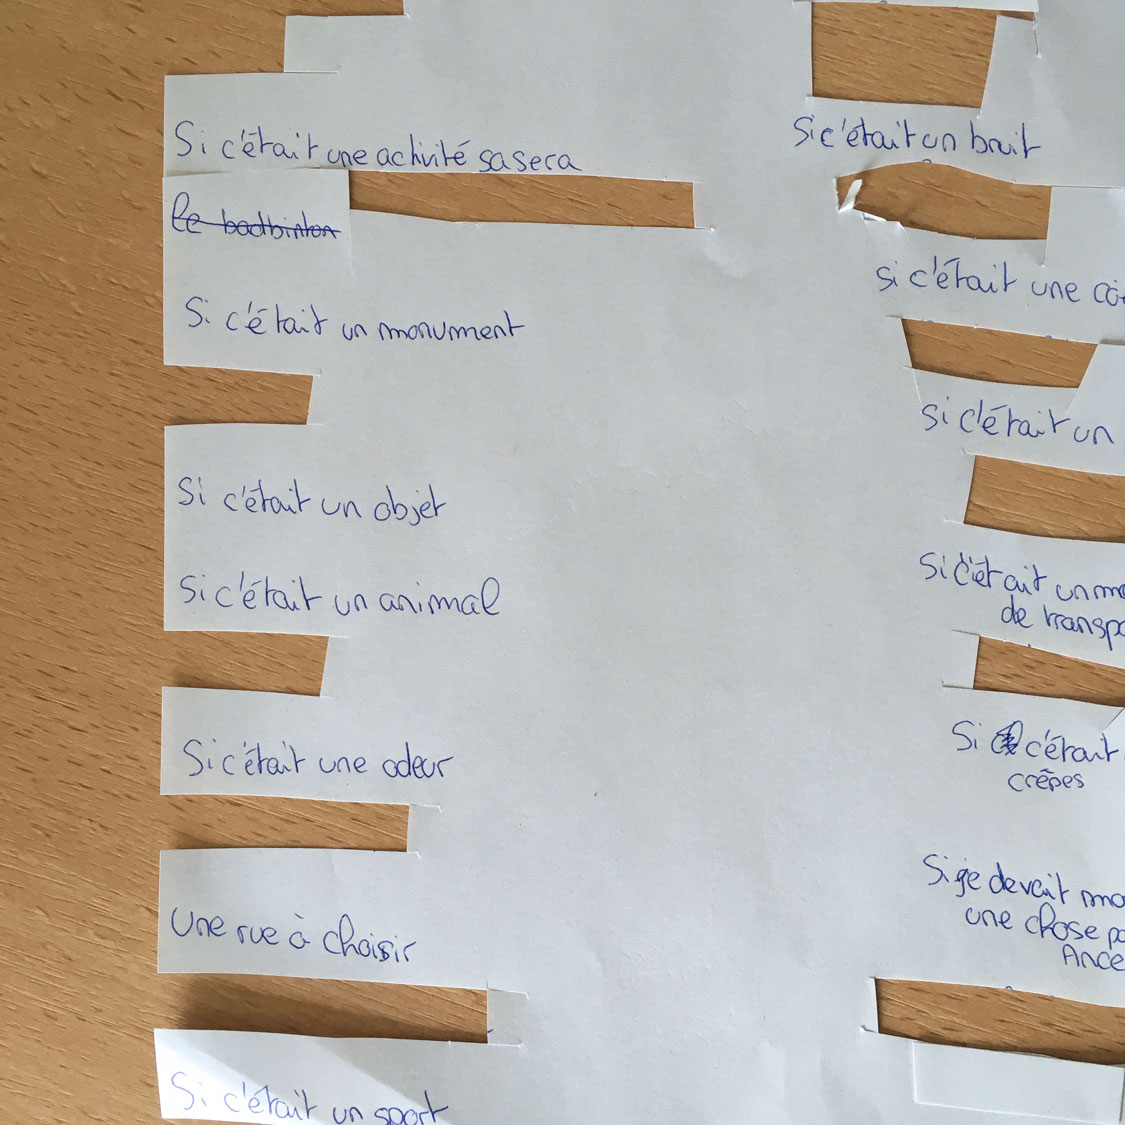 Si c'était une activité sa sera
le badbinton
Si c'était un monument
Si c'était un objet
Si c'était un animal
Si c'était une odeur
Une rue à choisir
Si c'était un sport
Si c'était un bruit
Si c'était une
Si c'était un
Si c'était un
de
Si c'était
crêpes
Si je devait
une chose